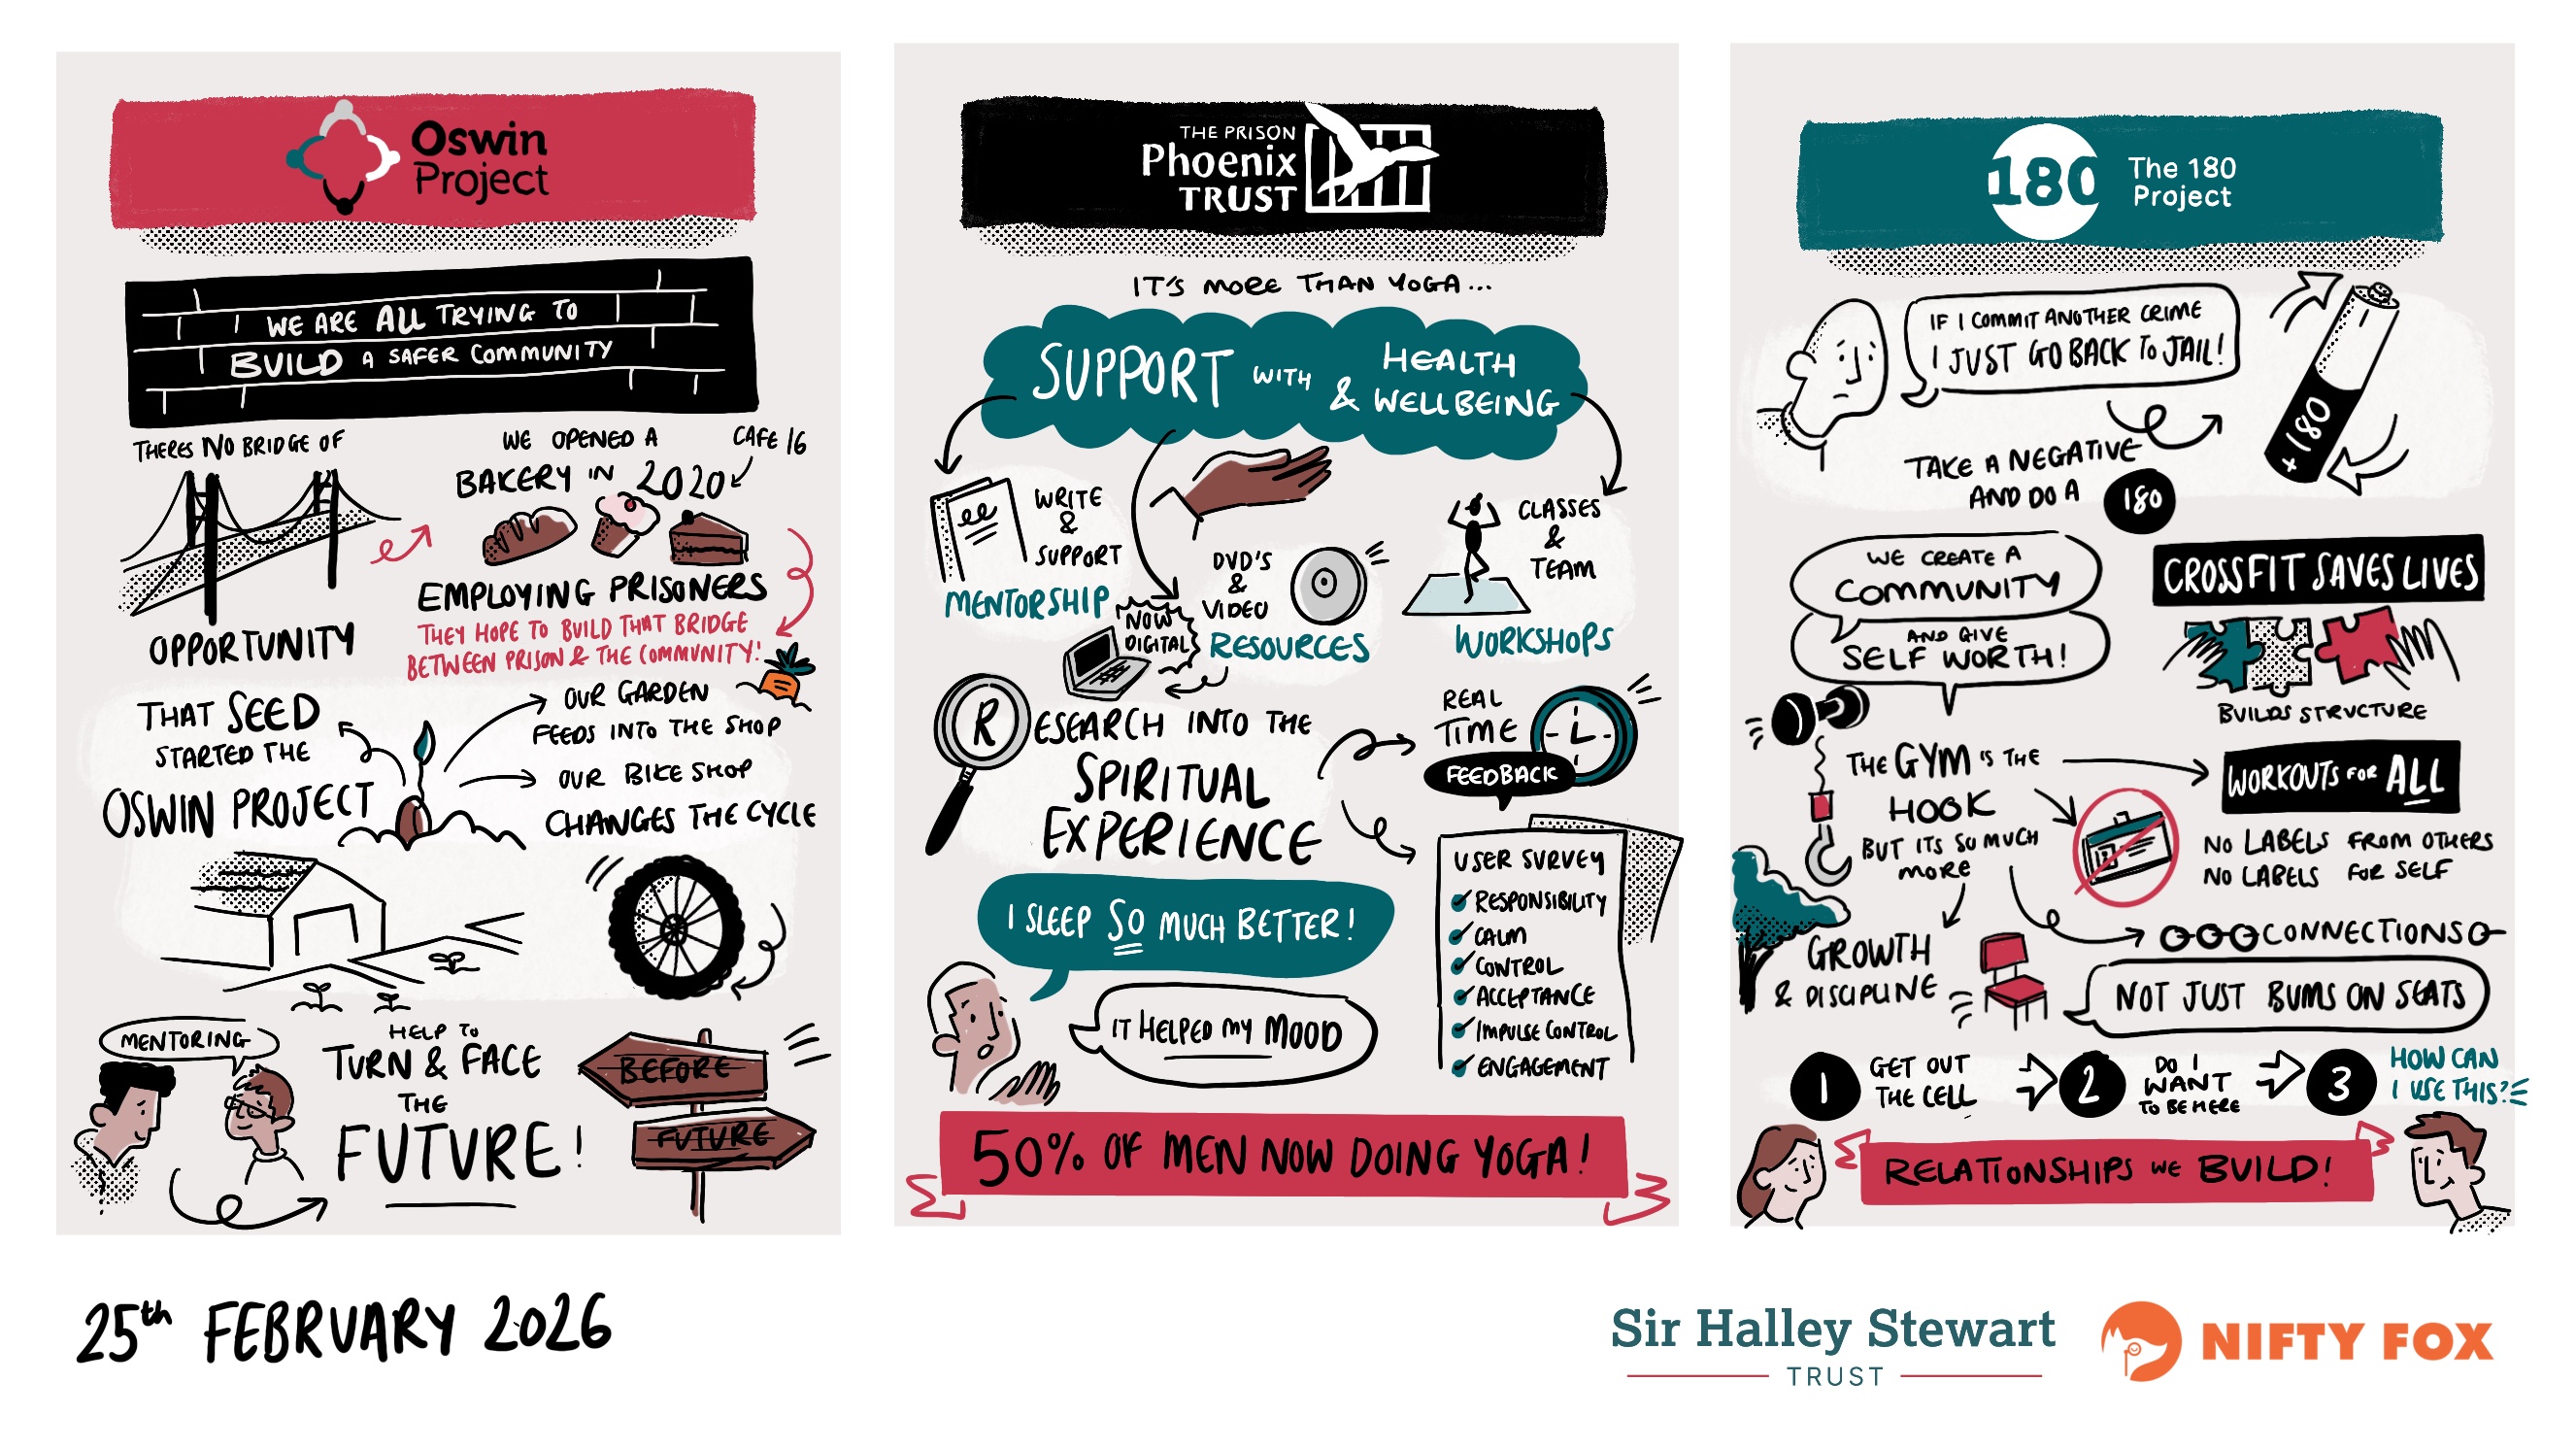 Oswin
Project
WE ARE ALL TRYING TO
BUILD A SAFER COMMUNITY
THERES NO BRIDGE OF
OPPORTUNITY
WE OPENED A
BAKERY IN 2020
CAFE 16
EMPLOYING PRISONERS
THEY HOPE TO BUILD THAT BRIDGE
BETWEEN PRISON & THE COMMUNITY!
THAT SEED
STARTED THE
OSWIN PROJECT
OUR GARDEN
FEEDS INTO THE SHOP
OUR BIKE SHOP
CHANGES THE CYCLE
MENTORING
HELP TO
TURN & FACE
THE
FUTURE!
BEFORE
FUTURE
THE PRISON
Phoenix
TRUST
IT'S MORE THAN YOGA...
SUPPORT WITH HEALTH
& WELLBEING
WRITE
&
SUPPORT
MENTORSHIP
NOW
DIGITAL
DVD'S
&
VIDEO
RESOURCES
CLASSES
&
TEAM
WORKSHOPS
RESEARCH INTO THE
SPIRITUAL
EXPERIENCE
REAL
TIME
FEEDBACK
USER SURVEY
RESPONSIBILITY
CALM
CONTROL
ACCEPTANCE
IMPULSE CONTROL
ENGAGEMENT
I SLEEP SO MUCH BETTER!
IT HELPED MY MOOD
50% OF MEN NOW DOING YOGA!
180
The 180
Project
IF I COMMIT ANOTHER CRIME
I JUST GO BACK TO JAIL!
+180
TAKE A NEGATIVE
AND DO A 180
WE CREATE A
COMMUNITY
AND GIVE
SELF WORTH!
CROSSFIT SAVES LIVES
BUILDS STRUCTURE
THE GYM IS THE
HOOK
BUT ITS SO MUCH
MORE
WORKOUTS FOR ALL
NO LABELS FROM OTHERS
NO LABELS FOR SELF
GROWTH
& DISCIPLINE
CONNECTIONS
NOT JUST BUMS ON SEATS
1 GET OUT
THE CELL
2 DO I
WANT
TO BE HERE
3 HOW CAN
I USE THIS?
RELATIONSHIPS WE BUILD!
25th FEBRUARY 2026
Sir Halley Stewart
TRUST
NIFTY FOX